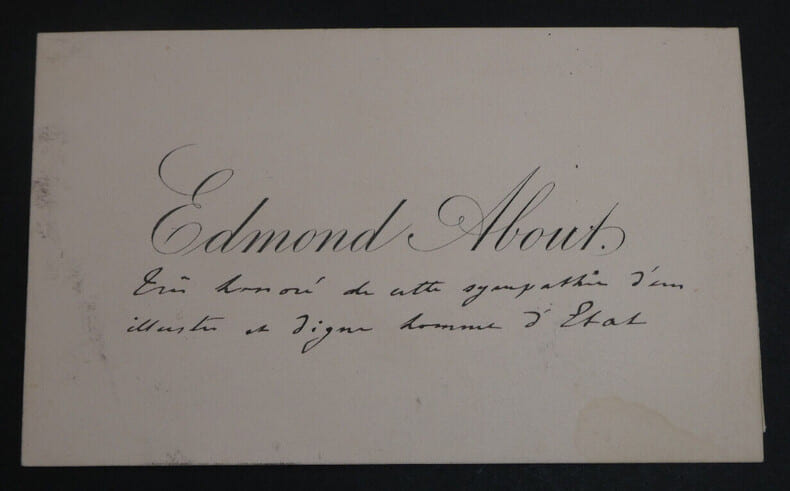 Edmond About.
Très honoré de cette sympathie d'un
illustre et digne homme d'Etat